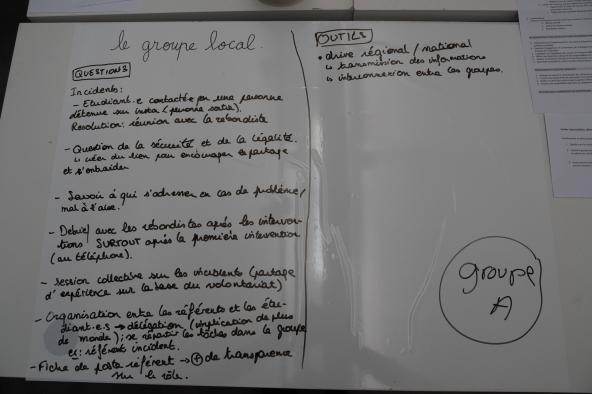 le groupe local.
QUESTIONS
Incidents:
- Etudiant.e contacté.e par une personne
détenue sur insta (personne sortie).
Resolution: réunion avec la
- Question de la sécurité et de la légalité.
↳ créer du lien pour encourager le partage
et s'entraider
- Savoir à qui s'adresser en cas de problème/
mal à l'aise.
- Debrief avec les après les interven-
tions SURTOUT après la première intervention
(au téléphone).
- Session collective sur les incidents (partage
d'expérience sur la base du volontariat)
- Organisation entre les référents et les étu-
diant.e.s → délégation (implication de plus
de monde); se répartir les tâches dans le groupe
ex: référent incident.
- Fiche de poste référent → ⊕ de transparence
sur le rôle.
OUTILS
• drive régional/national
↳ transmission des informations
↳ interconnexion entre les groupes.
groupe
A